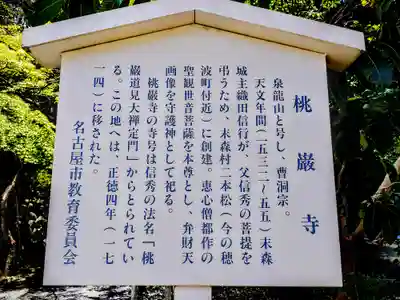 桃巌寺
泉龍山と号し、曹洞宗。
天文年間(一五三二〜五五)末森
城主織田信行が、父信秀の菩提を
弔うため、末森村二本松(今の穂
波町付近)に創建。恵心僧都作の
聖観世音菩薩を本尊とし、弁財天
画像を守護神として祀る。
桃巌寺の寺号は信秀の法名「桃
巌道見大禅定門」からとられてい
る。この地へは、正徳四年(一七
一四)に移された。
名古屋市教育委員会